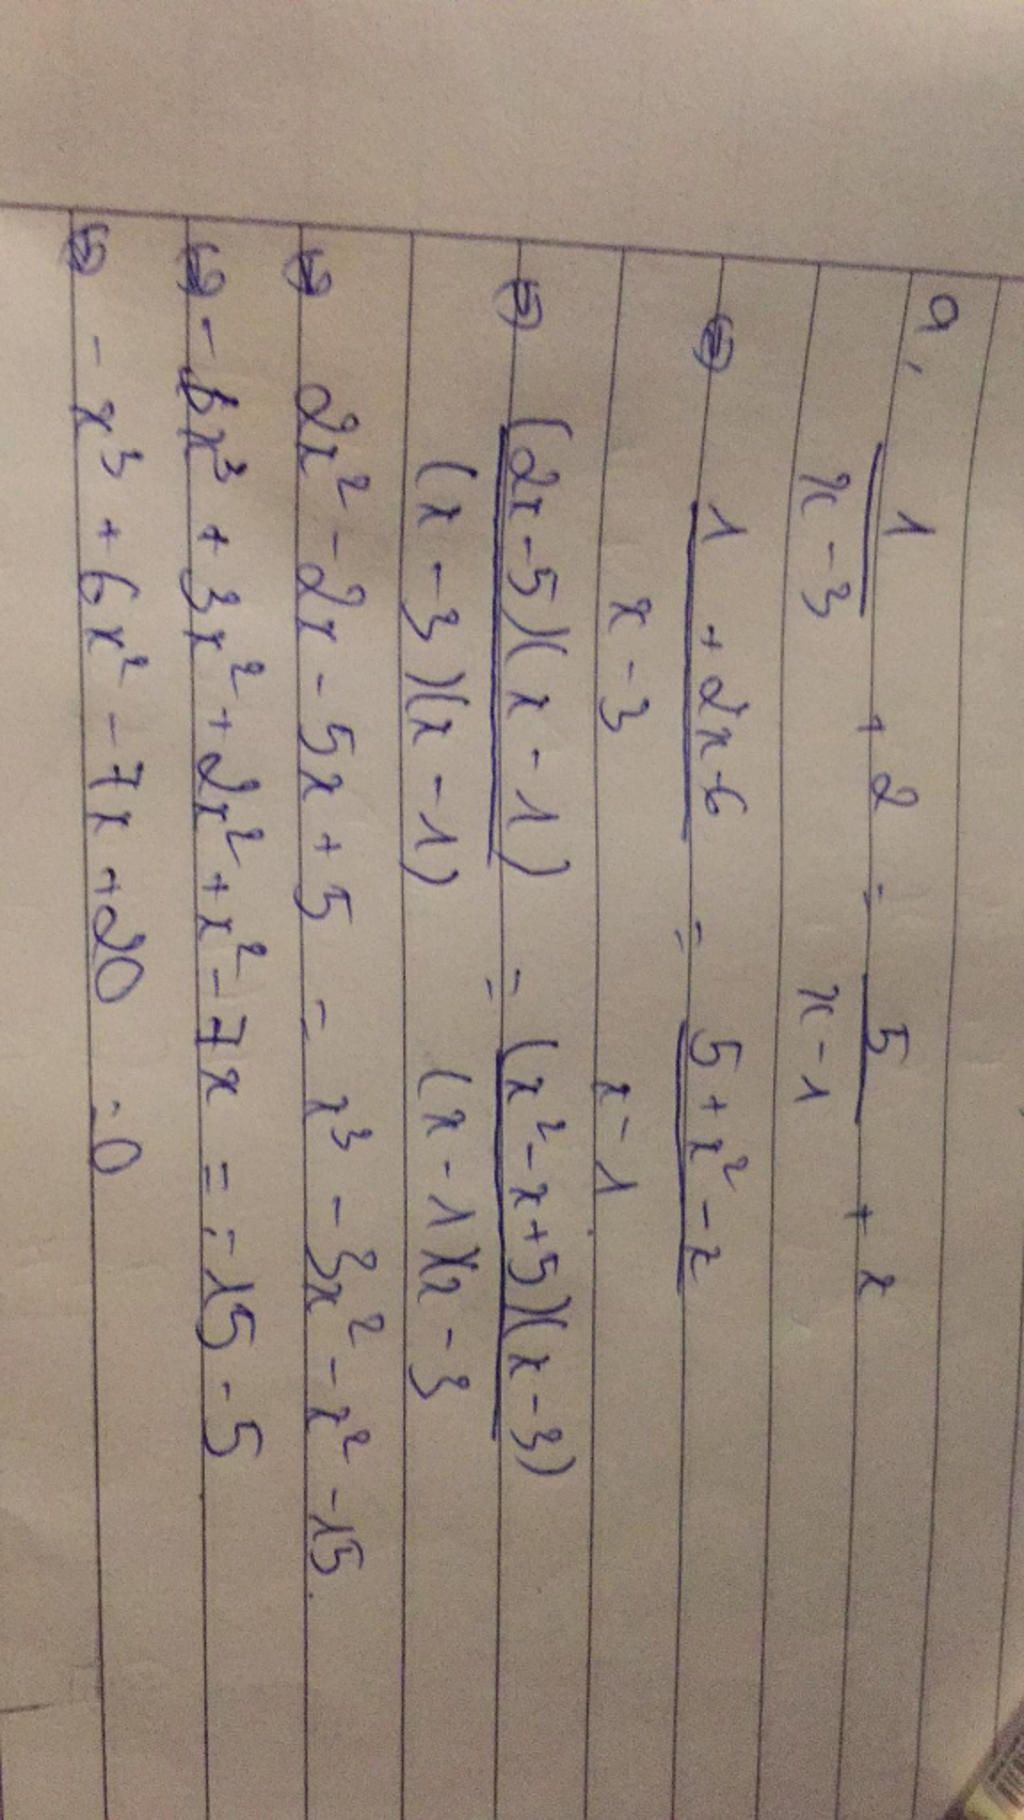 a, 1/(x-3) + 2 = 5/(x-1) + x
⇔ (1+2x-6)/(x-3) = (5+x²-x)/(x-1)
⇔ ((2x-5)(x-1))/((x-3)(x-1)) = ((x²-x+5)(x-3))/((x-1)(x-3
⇔ 2x²-2x-5x+5 = x³-3x²-x²-15
⇔ -x³+3x²+2x²+x²-7x = -15-5
⇔ -x³+6x²-7x+20 = 0